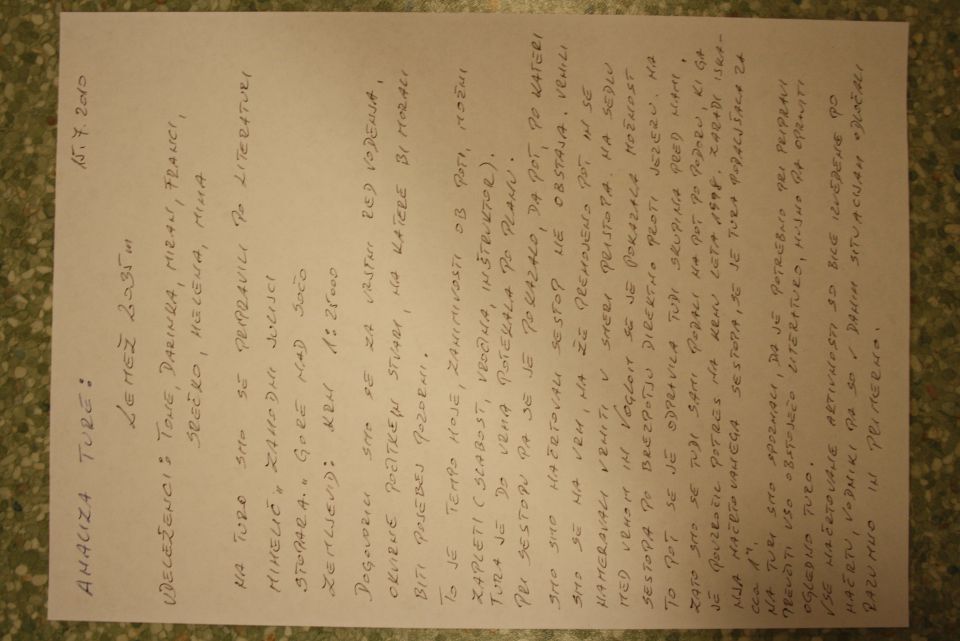 ANALIZA TURE: 15.7.2010
LEMEŽ 2035m
UDELEŽENCI: TONE, DARINKA, MIRAN, FRANCI,
SREČKO, HELENA, MIHA
NA TURO SMO SE PRIPRAVILI PO LITERATURI
MIHELIČ "ZAHODNI JULIJCI
STOPARJA "GORE NAD SOČO
ZEMLJEVID: KRN 1:25000
DOGOVORILI SMO SE ZA VRSTNI RED VODENJA,
OKVIRNE POČITKE IN STVARI, NA KATERE BI MORALI
BITI POSEBEJ POZORNI.
TO JE TEMPO HOJE, ZANIMIVOSTI OB POTI, MOŽNI
ZAPLETI (SLABOST, VROČINA, INŠTRUKTOR).
TURA JE DO VRHA POTEKALA PO PLANU.
PRI SESTOPU PA SE JE POKAZALO, DA POT, PO KATERI
SMO SMO NAČRTOVALI SESTOP NE OBSTAJA. VRNILI
SMO SE NA VRH, NA ŽE PREHOJENO POT IN SE
NAMERAVALI VRNITI V SMERI PRISTOPA. NA SEDLU
MED VRHOM IN VOGLOM SE JE POKAZALA MOŽNOST
SESTOPA PO BREZPOTJU DIREKTNO PROTI JEZERU. NA
TO POT SE JE ODPRAVILA TUDI SKUPINA PRED NAMI,
ZATO SMO SE TUDI SAMI PODALI NA POT PO PODORU, KI GA
JE POVZROČIL POTRES NA KRNU LETA 1998. ZARADI ISKA-
NJA NAČRTOVANEGA SESTOPA, SE JE TURA PODALJŠALA ZA
cca 1h.
NA TURI SMO SPOZNALI, DA JE POTREBNO PRI PRIPRAVI
PREUČITI VSO OBSTOJEČO LITERATURO, NUJNO PA OPRAVITI
OGLEDNO TURO.
VSE NAČRTOVANE AKTIVNOSTI SO BILE IZVEDENE PO
NAČRTU, VODNIKI PA SO V DANIH SITUACIJAH ODLOČALI
RAZUMNO IN PRIMERNO.